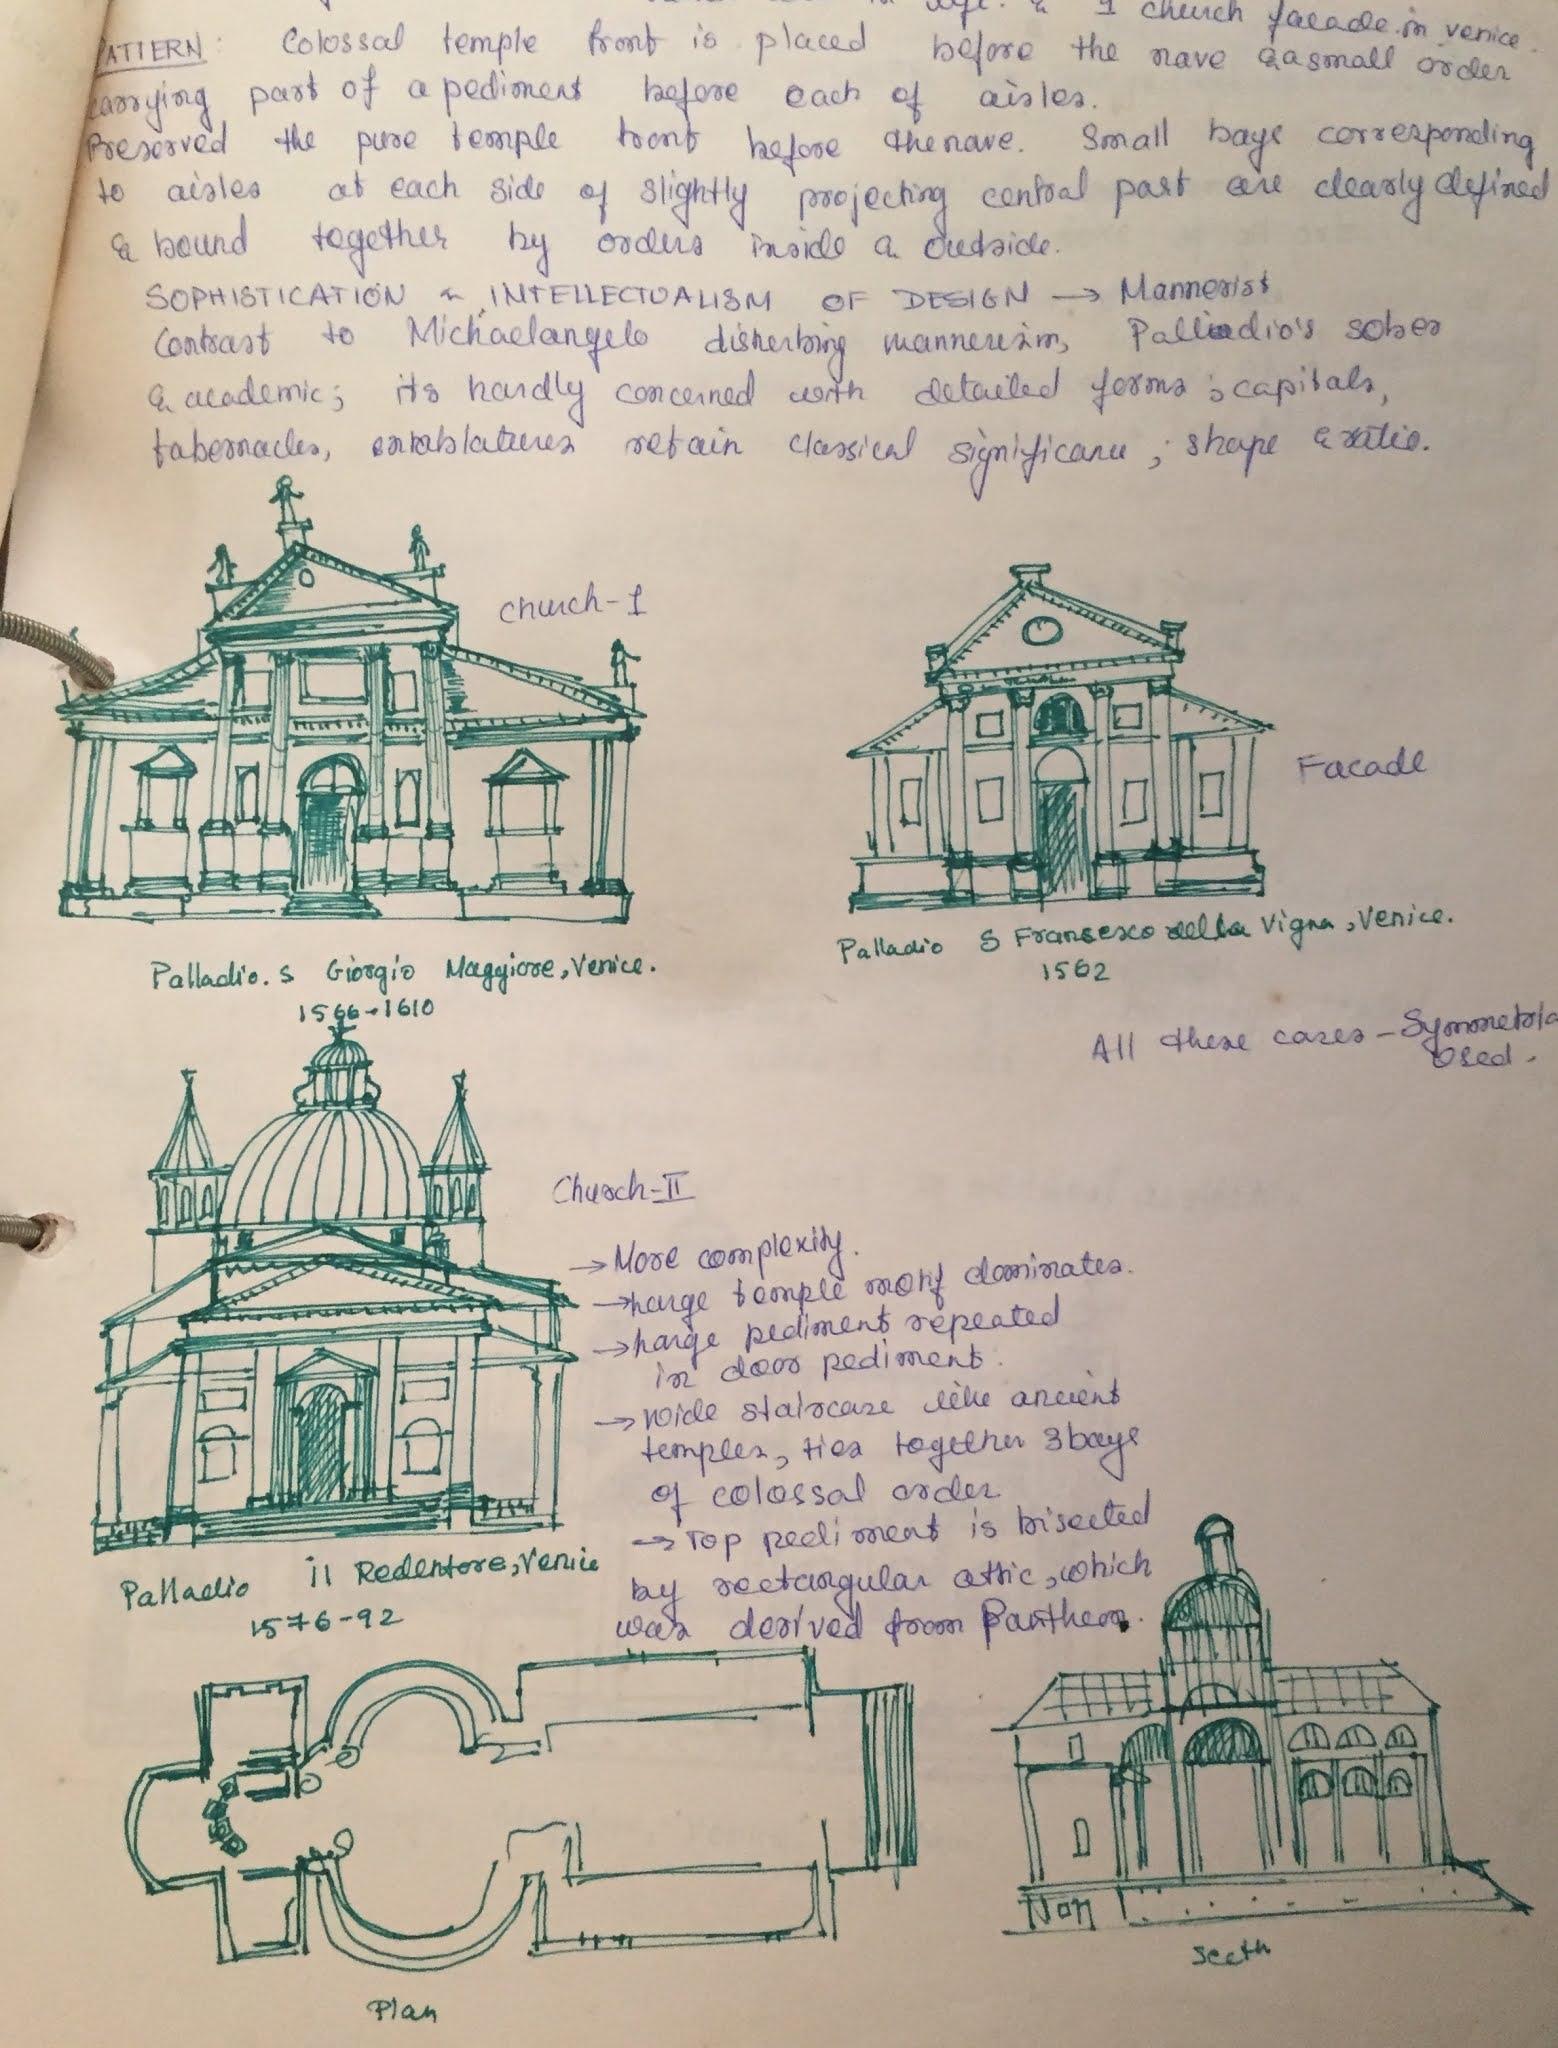 & 1 church facade in venice.
PATTERN: Colossal temple front is placed before the nave & a small order
carrying part of a pediment before each of aisles.
Preserved the pure temple front before the nave. Small bays corresponding
to aisles at each side of slightly projecting central part are clearly defined
& bound together by orders inside & outside.
SOPHISTICATION & INTELLECTUALISM OF DESIGN → Mannerist
Contrast to Michaelangelo disturbing mannerism, Palladio's sober
& academic; its hardly concerned with detailed forms; capitals,
tabernacles, entablatures retain classical significance; shape & ratio.
Church-1
Facade
Palladio. S Giorgio Maggiore, Venice.
1566-1610
Palladio S Fransesco della Vigna, Venice.
1562
All these cases - Symmetria
Used.
Church-II
→ More complexity.
→ Large temple motif dominates.
→ Large pediment repeated
in door pediment.
→ Wide staircase like ancient
temples, ties together 3 bays
of colossal order
→ Top pediment is bisected
by rectangular attic, which
was derived from Panthem.
Palladio il Redentore, Venice
1576-92
Plan
Sectn